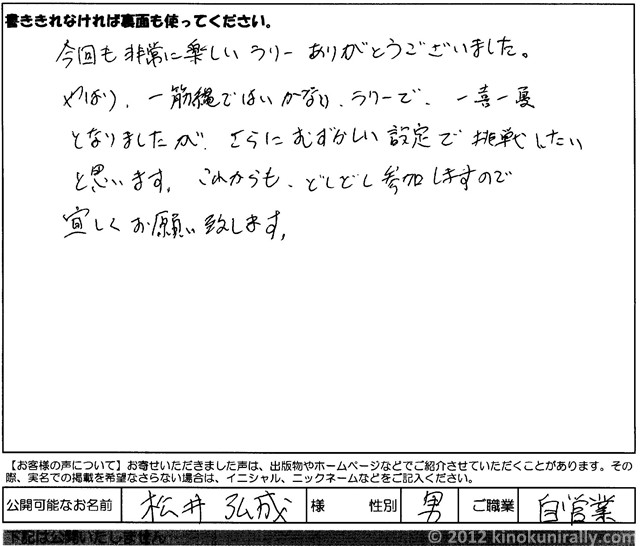 書ききれなければ裏面も使ってください。
今回も非常に楽しいラリーありがとうございました。
やはり、一筋縄ではいかない、ラリーで、一喜一憂
となりましたが、さらにむずかしい設定で挑戦したい
と思います。これからも、どしどし参加しますので
宜しくお願い致します。
【お客様の声について】お寄せいただきました声は、出版物やホームページなどでご紹介させていただくことがあります。その
際、実名での掲載を希望なさらない場合は、イニシャル、ニックネームなどをご記入ください。
公開可能なお名前 松井 弘成 様 性別 男 ご職業 自営業
下記は公開いたしません
© 2012 kinokunirally.com